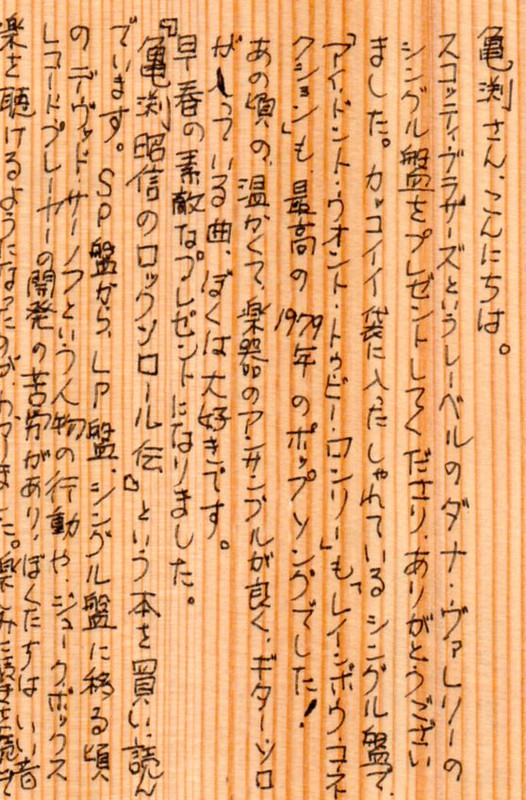 亀渕さん、こんにちは。
スコッティ・ブラザーズというレーベルのダナ・ヴァレリーの
シングル盤をプレゼントしてくださり、ありがとうござい
ました。カッコイイ袋に入ったしゃれているシングル盤で、
「アイ・ドント・ウォント・トゥ・ビー・ロンリー」も「レインボウ・コネ
クション」も、最高の1979年のポップソングでした!
あの頃の、温かくて、楽器のアンサンブルが良く、ギター・ソロ
が入っている曲、ぼくは大好きです。
早春の素敵なプレゼントになりました。
『亀渕昭信のロックンロール伝』という本を買い、読ん
でいます。SP盤から、LP盤、シングル盤に移る頃
のデヴィッド・サーノフという人物の行動や、ジューク・ボックス
レコードプレーヤーの開発の苦労があり、ぼくたちはいい音
楽を聴けるようになったのがわかりました。楽しみに